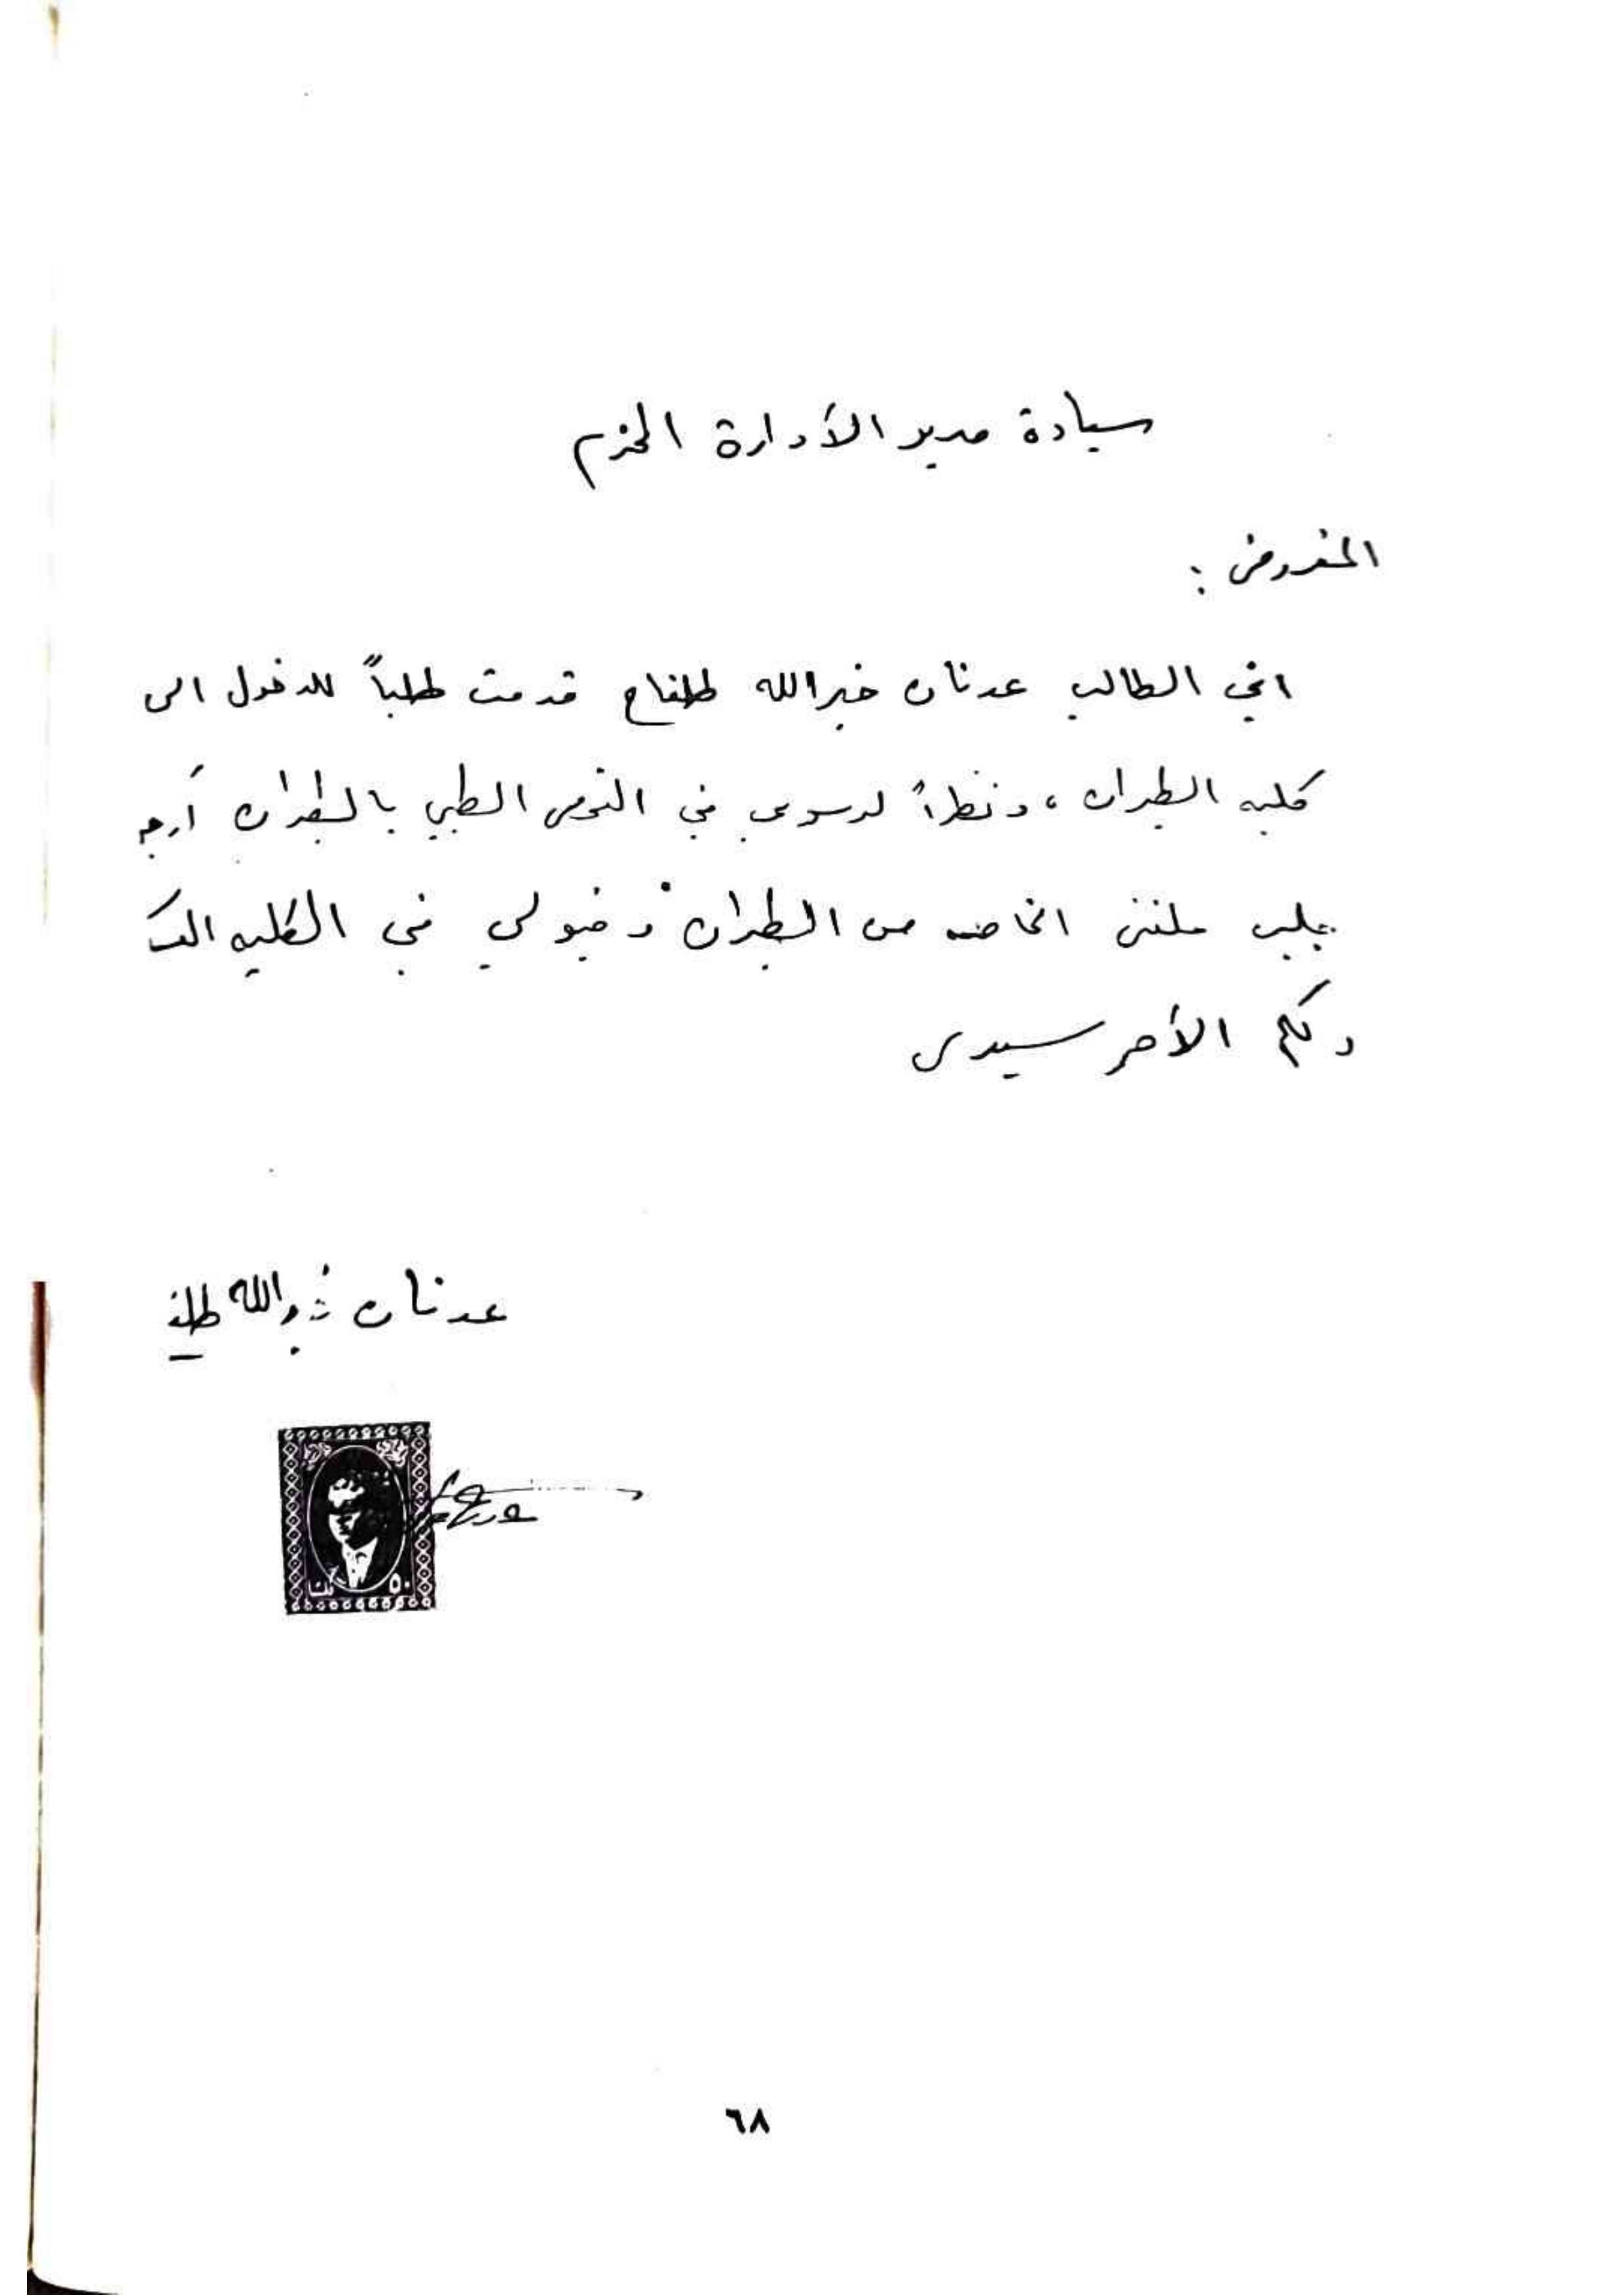 سيادة مدير الأدارة المحترم
المعروض :
اني الطالب عدنان خيرالله طلفاح قدمت طلباً للدخول الى
كليه الطيران ، ونظراً لرسوبي في الفحص الطبي بالطيران أرجو
بجلب ملفتي الخاصه من الطيران وقبولي في الكليه
ولكم الأمر سيدي
عدنان خيرالله
٥٠
٦٨